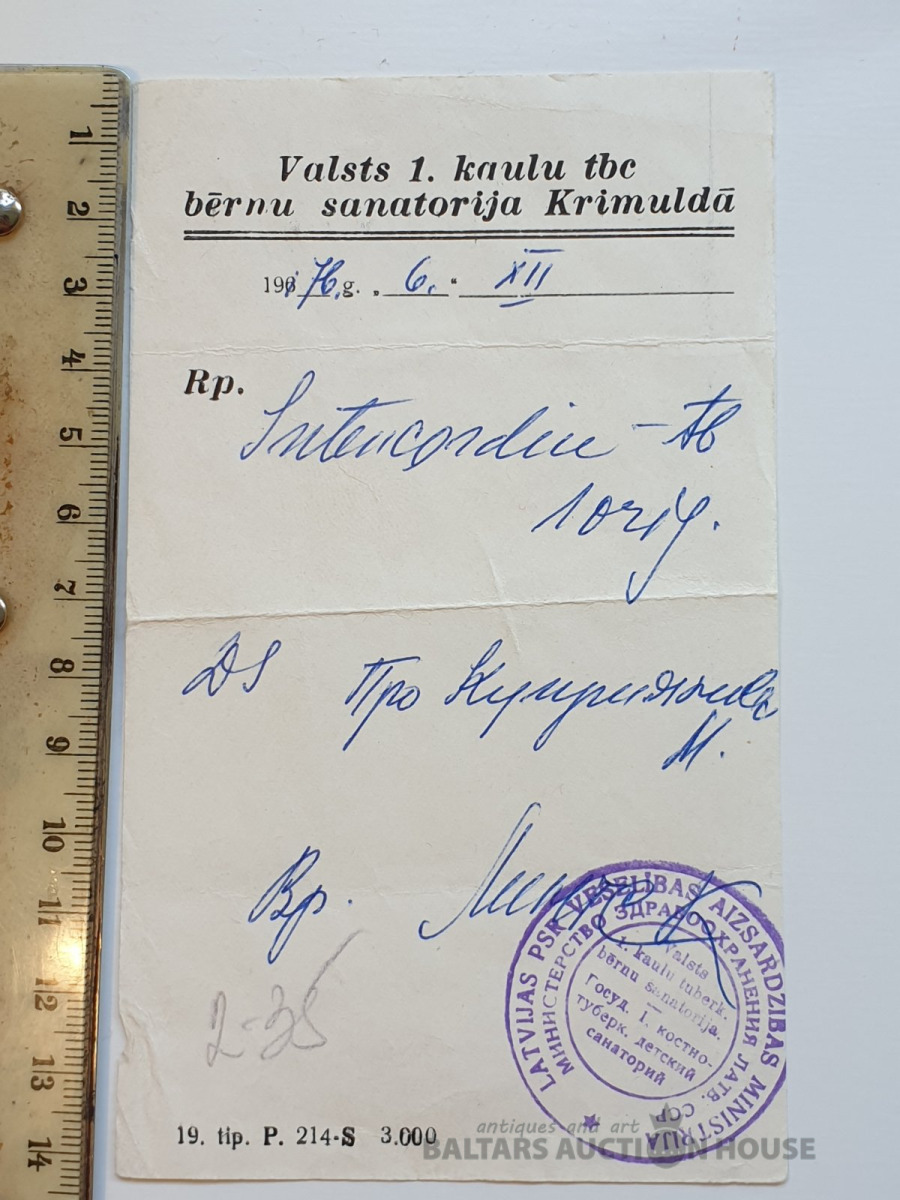 Valsts 1. kaulu tbc
bērnu sanatorija Krimuldā
196 76. g. „ 6. “ XII
Rp.
Intencordin – tb
1 orig.
DS Про
М.
Вр.
LATVIJAS PSR VESELĪBAS AIZSARDZĪBAS MINISTRIJA
МИНИСТЕРСТВО ЗДРАВООХРАНЕНИЯ ЛАТВ. ССР
Valsts
1. kaulu tuberk.
bērnu sanatorija.
Госуд. 1. костно-
туберк. детский
санаторий
2-35
19. tip. P. 214-S 3.000
antiques and art
BALTARS AUCTION HOUSE
1
2
3
4
5
6
7
8
9
10
11
12
13
14